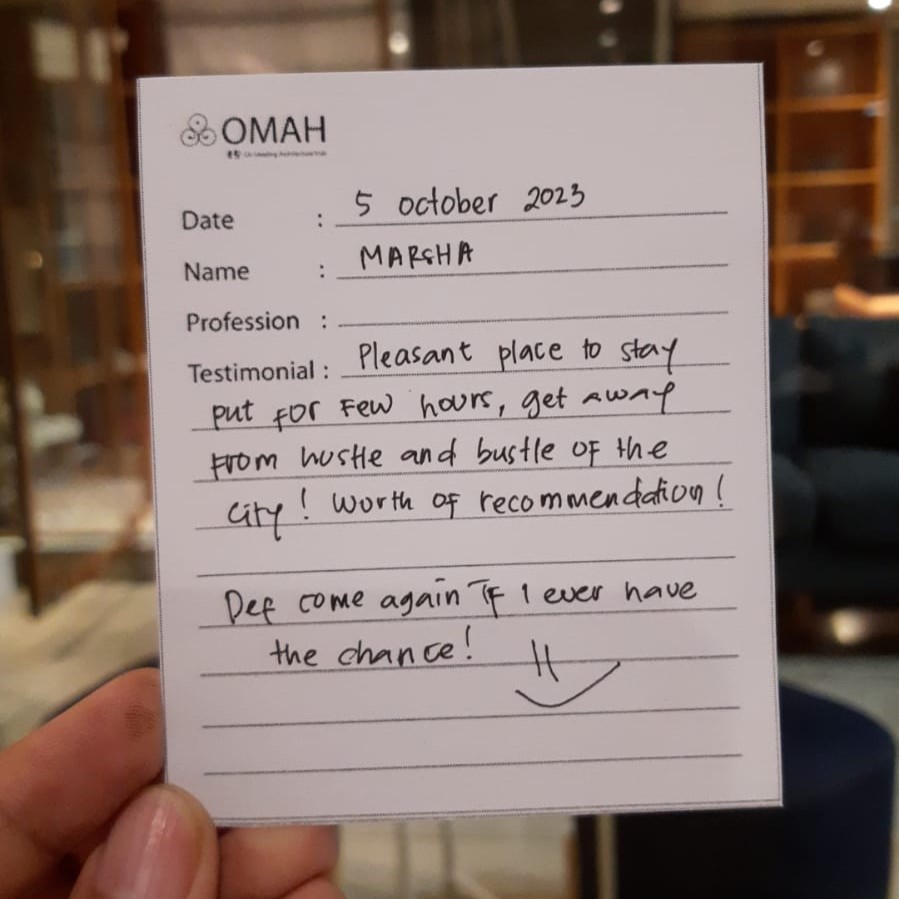 OMAH
Date : 5 october 2023
Name : MARSHA
Profession :
Testimonial : Pleasant place to stay
put for Few hours, get away
From hustle and bustle of the
city! Worth of recommendation!
Def come again If I ever have
the chance!